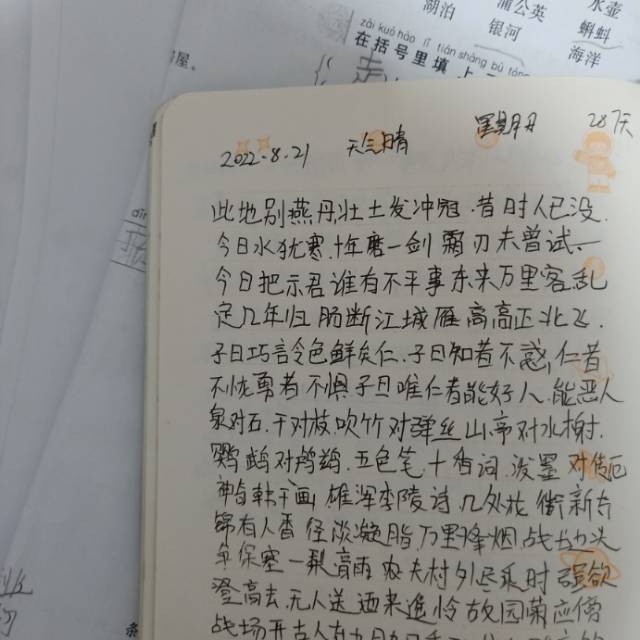 湖泊 蒲公英 水壶
银河 蝌蚪
海洋
zài kuò hào lǐ tián shàng
在括号里填上
屋。
2022.8.21 天气晴 星期日 287天
此地别燕丹壮土发冲冠.昔时人已没.
今日水犹寒.十年磨一剑霜刃未曾试.
今日把示君谁有不平事东来万里客乱
定几年归肠断江城雁高高正北飞.
子曰巧言令色鲜矣仁.子曰知者不惑,仁者
不忧勇者不惧子曰唯仁者能好人.能恶人
泉对石.干对枝.吹竹对弹丝山亭对水榭.
鹦鹉对鸬鹚.五色笔十香词.泼墨
神韩干画.雄浑李陵诗几处花街新夺
锦有人香径淡凝脂.万里烽烟战士
保塞一犁膏雨农夫村外尽乘时
登高去.无人送酒来遥怜故园菊应傍
战场开